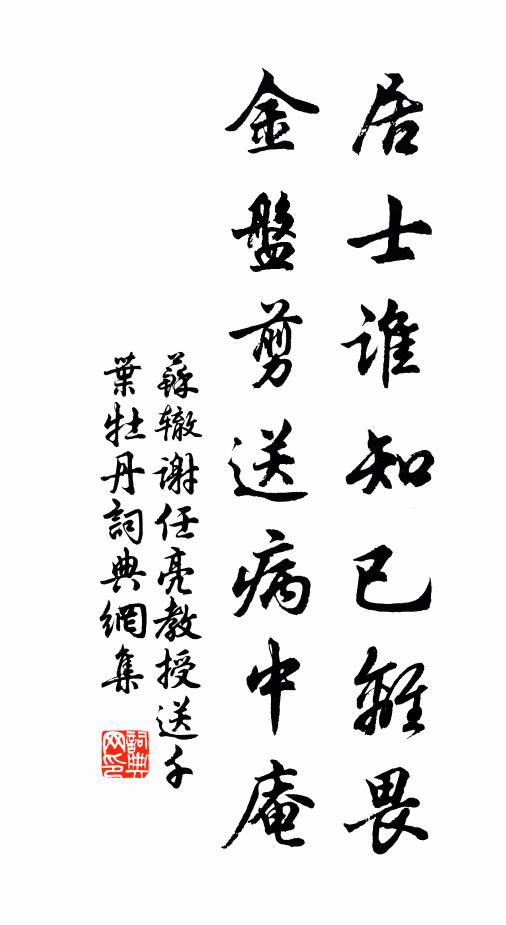 居士誰知已離畏
金盤剪送病中庵
蘇轍謝任亮教授送千
葉牡丹詞典網集
詞典
网印